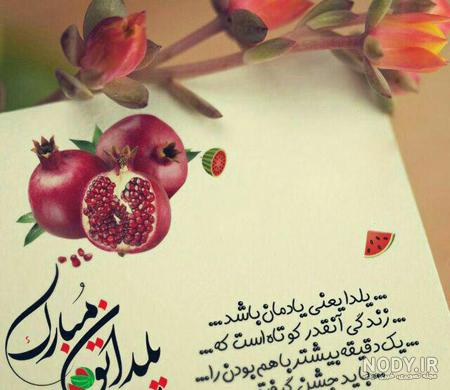 ... یلدا یعنی یادمان باشد ...
... زندگی آنقدر کوتاه است که ...
... یک دقیقه بیشتر باهم بودن را ...
باید جشن گرفت
یلداتون مبارک
NODY.IR